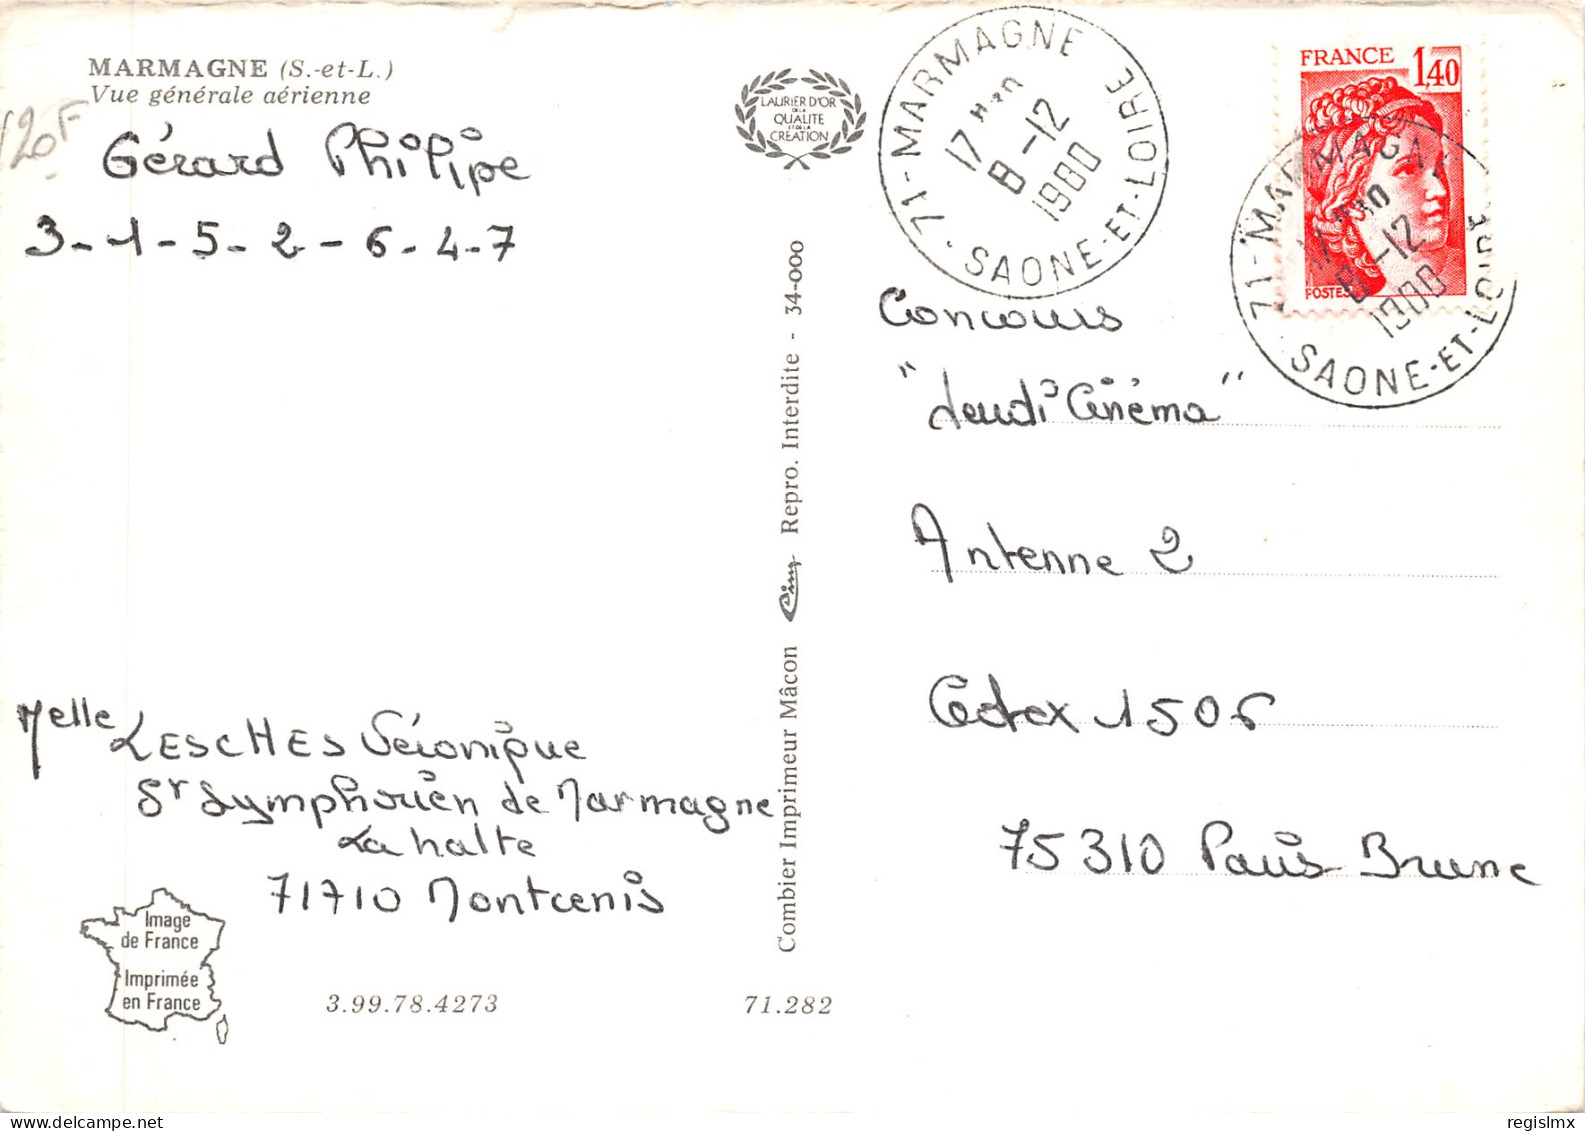 MARMAGNE (S.-et-L.)
Vue générale aérienne
120F
Gérard Philipe
3-1-5-2-6-4-7
Melle LESCHES Véronique
St Symphorien de Marmagne
La halte
71710 Montcenis
Image
de France
Imprimée
en France
3.99.78.4273
71.282
LAURIER D'OR
DE LA
QUALITE
ET DE LA
CREATION
Combier Imprimeur Mâcon Cim Repro. Interdite - 34-000
71-MARMAGNE
SAONE-ET-LOIRE
17H
8-12
1980
FRANCE 1,40
POSTES
71-MARMAGNE
SAONE-ET-LOIRE
17H30
8-12
1980
Concours
"Jeudi Cinéma"
Antenne 2
Cedex 1506
75310 Paris Brune
regislmx
delcampe.net